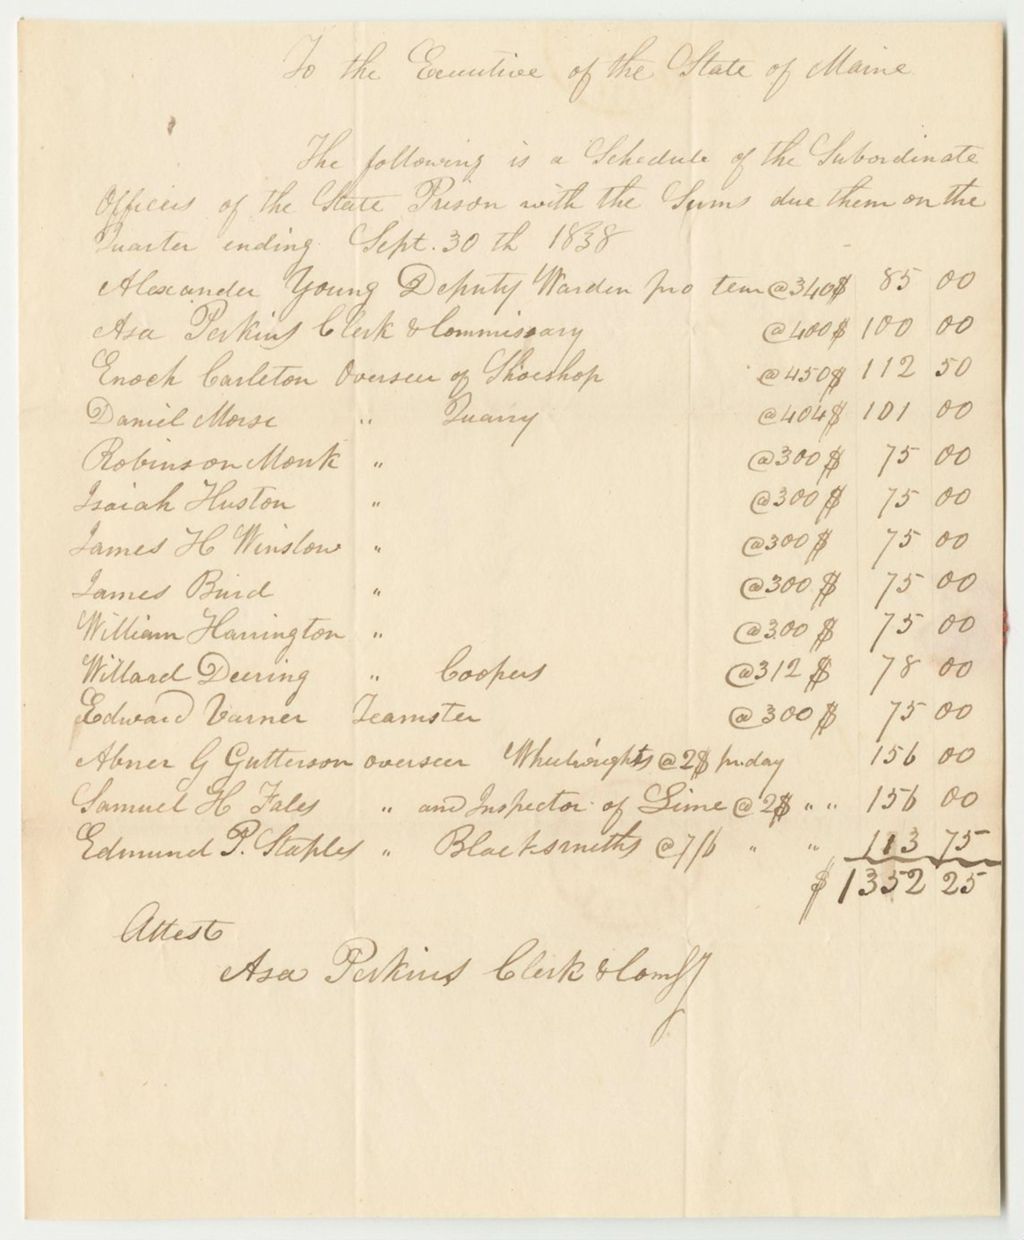 To the Executive of the State of Maine
The following is a Schedule of the Subordinate
Officers of the State Prison with the Sums due them on the
Quarter ending Sept. 30 th 1838
Alexander Young Deputy Warden pro tem @340$ 85 00
Asa Perkins Clerk & Commissary @400$ 100 00
Enoch Carleton Overseer of Shoeshop @450$ 112 50
Daniel Morse " Quarry @404$ 101 00
Robinson Monk " @300$ 75 00
Isaiah Huston " @300$ 75 00
James H Winslow " @300$ 75 00
James Burd " @300$ 75 00
William Harrington " @300$ 75 00
Willard Deering " Coopers @312$ 78 00
Edward Varner Teamster @300$ 75 00
Abner G Gutterson overseer Wheelwrights @2$ pr day 156 00
Samuel H Fales " and Inspector of Lime @2$ " " 156 00
Edmund P. Staples " Blacksmiths @7/6 " " 113 75
$1352 25
Attest
Asa Perkins Clerk & Comssy